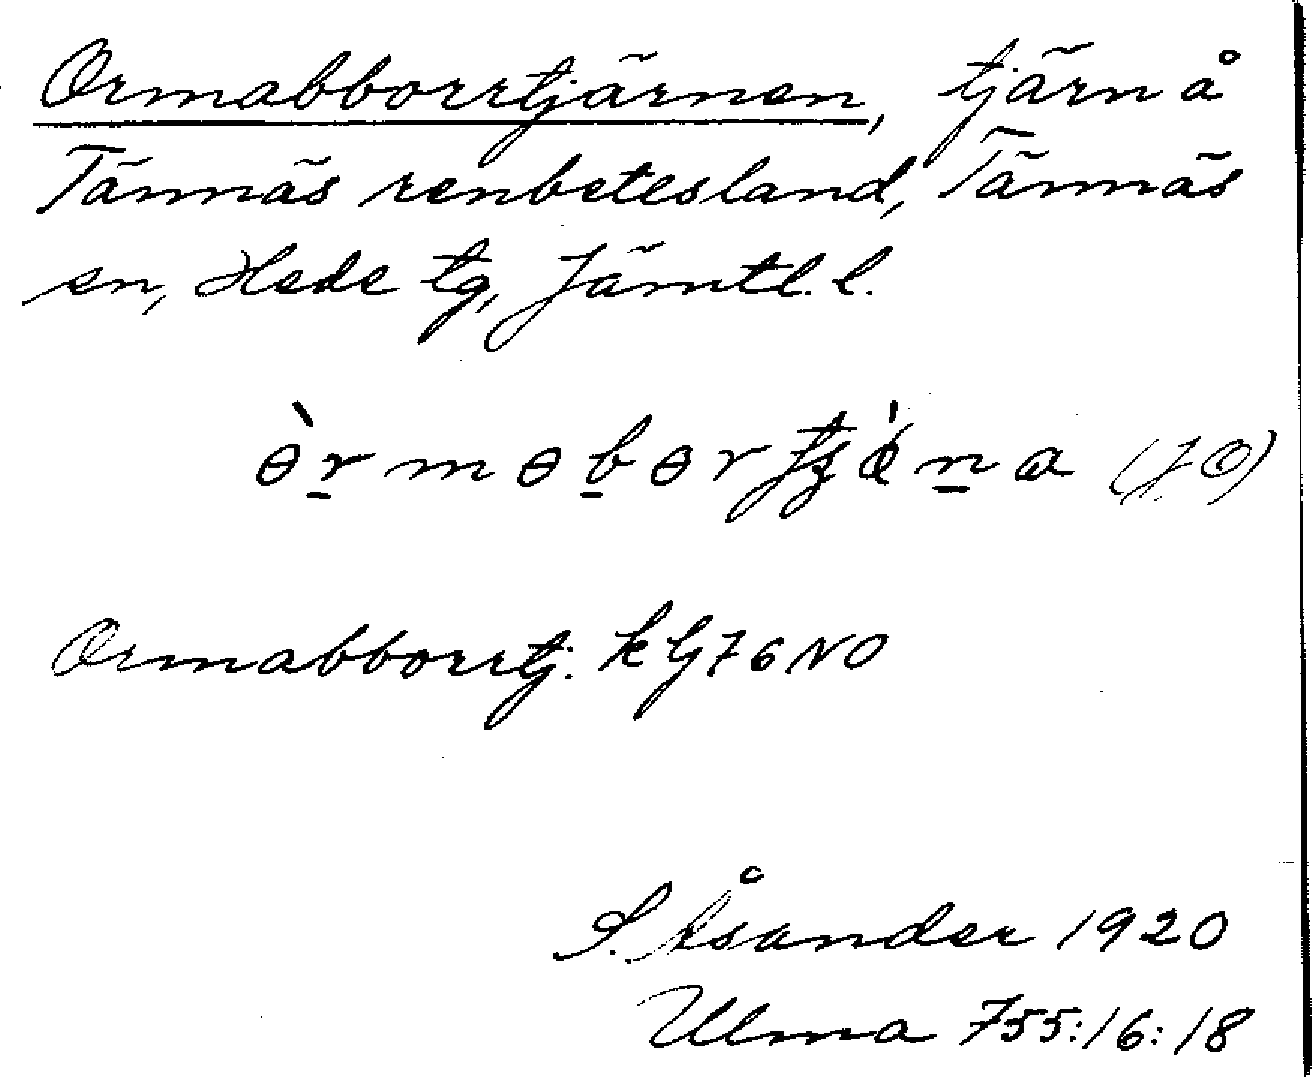 Ormabborrtjärnen, tjärn å
Tännäs renbetesland, Tännäs
sn, Hede tg, Jämtl. l.
ɵ̀r̲mɵb̲ɵrtʒɵ́n̲a (JÖ)
Ormabborrtj. k G76NO
S. Åsander 1920
Ulma 755:16:18